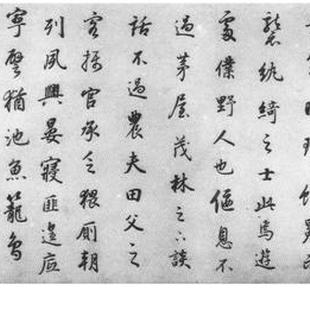 襲紈綺之士此焉遊
處僕野人也偃息不
過茅屋茂林之下談
話不過農夫田父之
客攝官承乏猥廁朝
列夙興晏寢匪遑底
寧譬猶池魚籠鳥